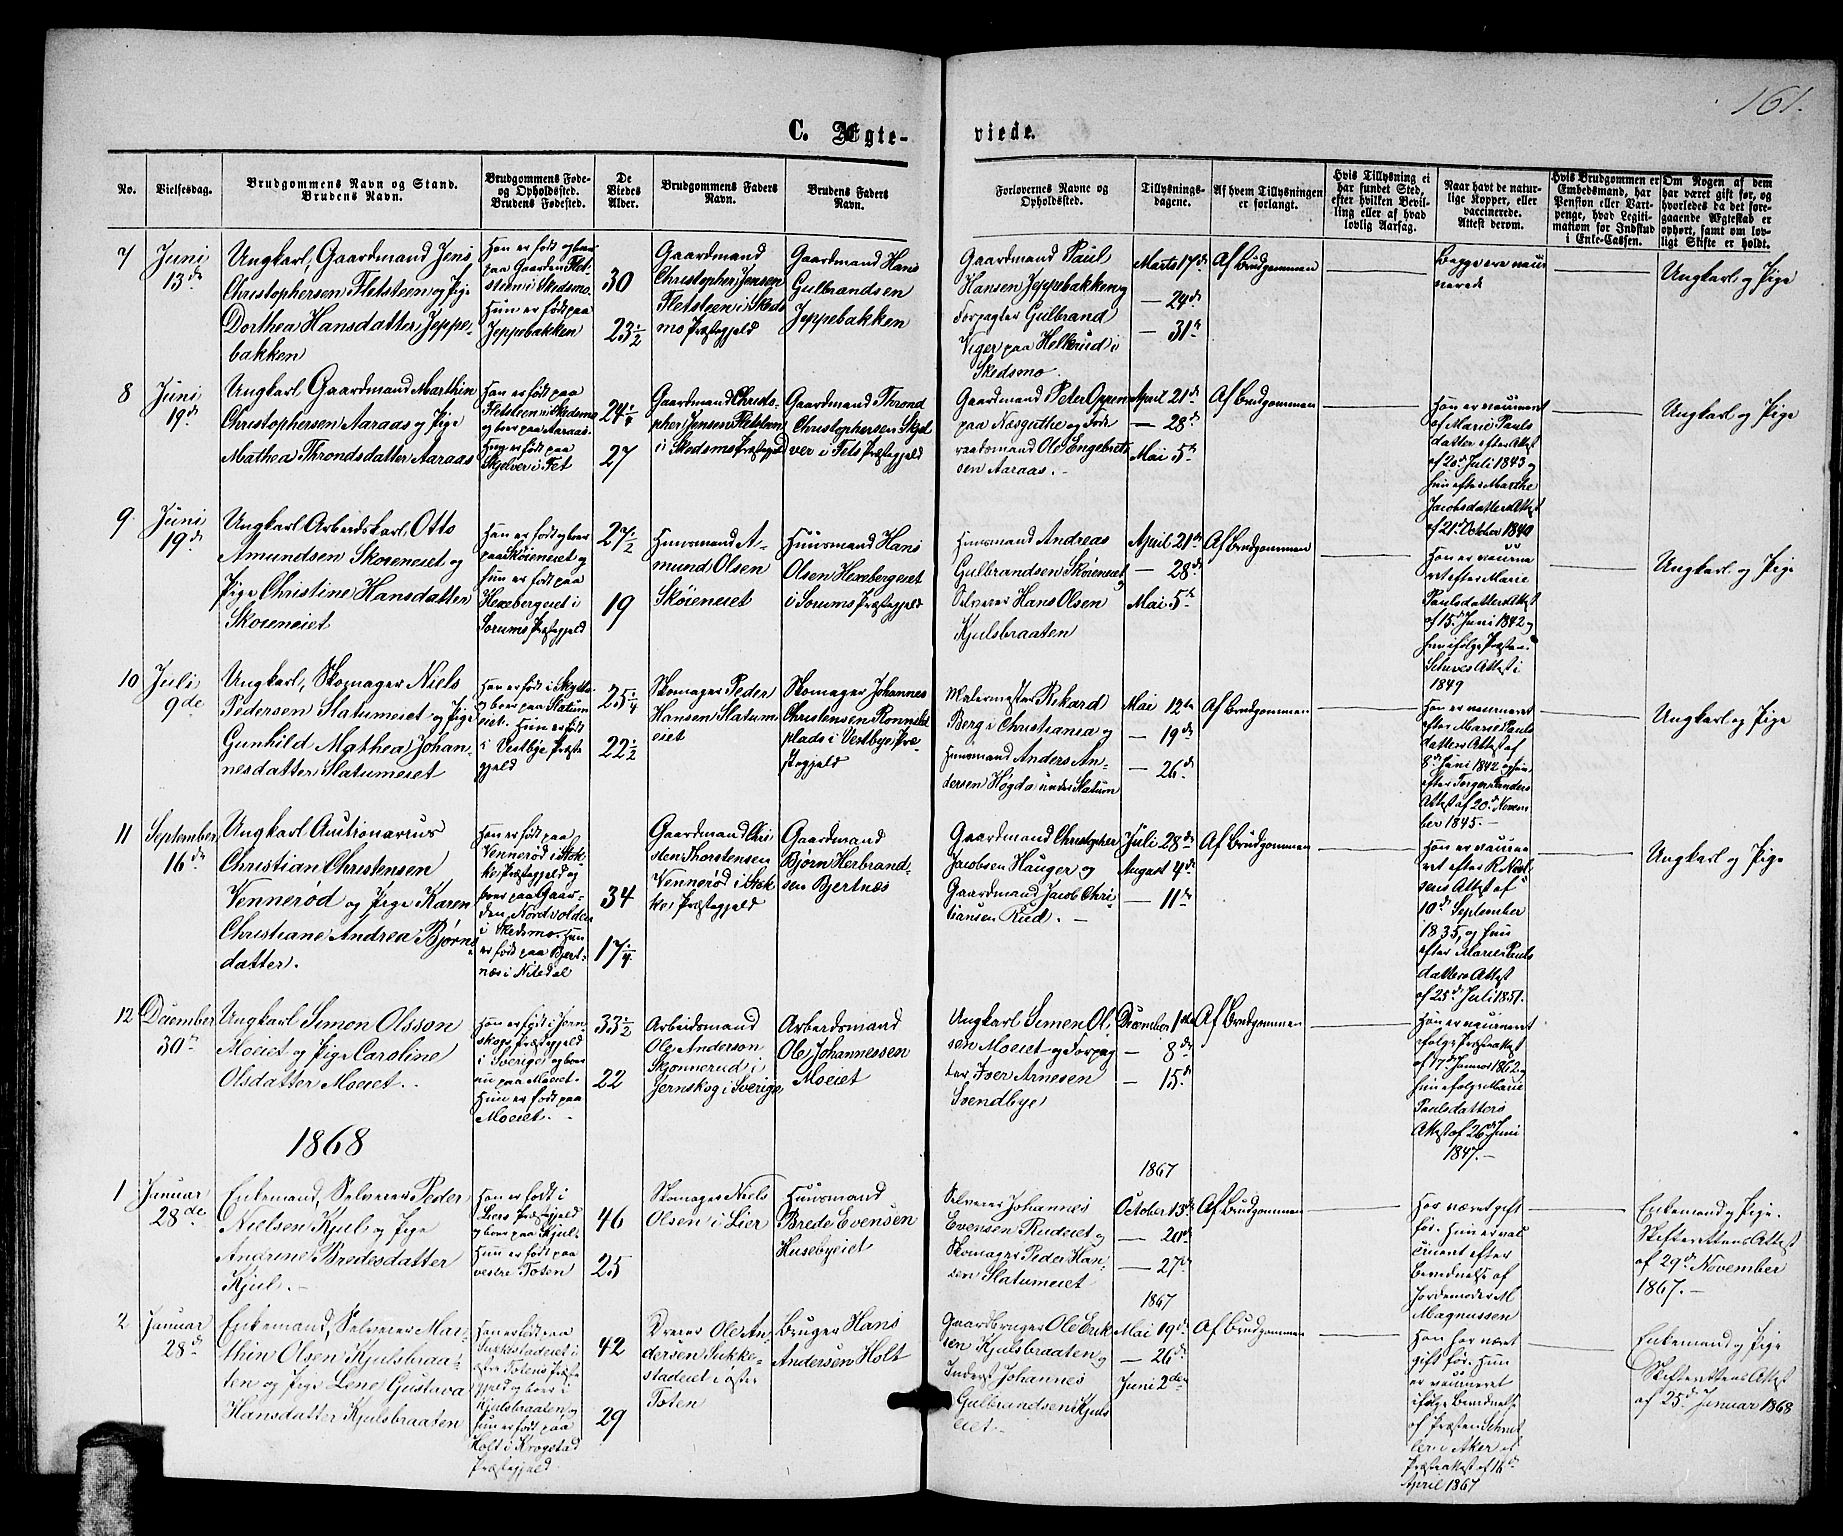 161.
C. Ægte-
viede.
No.
Vielsesdag.
Brudgommens Navn og Stand.
Brudens Navn.
Brudgommens Føde-
og Opholdssted.
Brudens Fødested.
De
Viedes
Alder.
Brudgommens Faders
Navn.
Brudens Faders
Navn.
Forlovernes Navne og
Opholdssted.
Tillysnings-
dagene.
Af hvem Tillysningen
er forlangt.
Hvis Tillysning ei
har fundet Sted,
efter hvilken Bevil-
ling eller af hvad
lovlig Aarsag.
Naar havt de natur-
lige Kopper, eller
vaccinerede.
Attest derom.
Hvis Brudgommen er
Embedsmand, har
Pension eller Vart-
penge, hvad Legiti-
mation for Indskud
i Enke-Cassen.
Om Nogen af dem
har været gift før, og
hvorledes da det fore-
gaaende Ægteskab er
ophørt, samt om lov-
ligt Skifte er holdt.
7
Juni
13de
Ungkarl, Gaardmand Jens
Christophersen Fletsteen og Pige
Dorthea Hansdatter Jeppe-
bakken
Han er født og boer
paa Gaarden Flet-
steen i Skedsmo.
Hun er født paa
Jeppebakken
30
23½
Gaardmand
Christopher Jensen
Fletsteen i Skeds
mo Præstegjeld
Gaardmand Hans
Gulbrandsen
Jeppebakken
Gaardmand Paul
Hansen Jeppebakken og
Forpagter Gulbrand
Viger paa Helkrud i
Skedsmo.
Marts 17de
— 24de
— 31te
Af Brudgommen
Begge ere vacci
nerede
Ungkarl og Pige
8
Juni
19de
Ungkarl Gaardmand Marthin
Christophersen Aaraas og Pige
Mathea Throndsdatter Aaraas
Han er født paa
Fletsteen i Skedsmo
og boer paa Aaraas.
Hun er født paa
Skjelver i Fet
24¼
27
Gaardmand Christo-
pher Jensen Fletsteen
i Skedsmo Præstegjeld
Gaardmand Thrond
Christophersen Skjel
ver i Fets Præstegjeld
Gaardmand Peter Opren
paa Næsguthe og Forli
vaadsmand Ole Engebrets
sen Aaraas.
April 21de
— 28de
Mai 5te
Af Brudgommen
Han er vaccineret
af Marie Pauls
datter efter Attest
af 20de Juli 1843 og
hun efter Marthe
Jacobsdatters Attest
af 21de October 1840
Ungkarl og Pige
9
Juni
19de
Ungkarl Arbeidskarl Otto
Amundsen Skoieneiet og
Pige Christine Hansdatter
Skoieneiet
Han er født og boer
paa Skøieneiet og
hun er født paa
Hexebergeiet i
Sorums Præstegjeld
27½
19
Huusmand A-
mund Olsen
Skøieneiet
Huusmand Hans
Olsen Hexebergeiet
i Sorums Præstegjeld
Huusmand Andreas
Gulbrandsen Skøieneiet
og
Selveier Hans Olsen
Kjulsbraaten
April 21de
— 28de
Mai 5te
Af Brudgommen
Han er vaccine
ret efter Marie
Paulsdatters Attest
af 15de Juni 1842 og
hun ifølge Præsten
Attest i
1849
Ungkarl og Pige
10
Juli
9de
Ungkarl, Skomager Niels
Pedersen Slatumeiet og Pige
Gunhild Mathea Johan-
nesdatter Slatumeiet
Han er født i Skytts
og boer paa Slatum
eiet. Hun er født
i Vestbye Præste
gjeld
25¼
22½
Skomager Peder
Hansen Slatum
eiet
Skomager Johannes
Christensen
plads i Vestbye Præ-
stegjeld
Malermester Rikard
Berg i Christiania og
Huusmand Anders An-
dersen Høgda under Slatum
Mai 12te
— 19de
— 26de
Af Brudgommen
Han er vaccineret
efter Marie Pauls
datters Attest af
8de Juni 1842 og hun
efter
Attest af 20de Novem
ber 1845.
Ungkarl og Pige
11
September
16de
Ungkarl Auctionarius
Christian Christensen
Vennerød og Pige Karen
Christiane Andrea Bjørns
datter.
Han er født paa
Vennerød i Stok-
ke Præstegjeld og
boer paa Gaar-
den Nordvolden
i Skedsmo. Hun
er født paa Bjert-
næs i Nitedal
34
17¼
Gaardmand Chri
sten Thorstensen
Vennerød i Stok
ke Præstegjeld
Gaardmand
Bjørn Herbrand-
sen Bjertnæs
Gaardmand Christopher
Jacobsen Hauger og
Gaardmand Jacob Chri-
stiansen Rud.
Juli 28de
August 4de
— 11te
Af Brudgommen
Han er vaccine
ret efter R.
sens Attest af
10de September
1835, og hun
efter Marie Pauls
datters Attest
af 25de Juli 1851.
Ungkarl og Pige
12
December
30te
Ungkarl Simon Olsson
Moeiet og Pige Caroline
Olsdatter Moeiet.
Han er født i Jern-
skogs Præstegjeld
i Sverige og boer
nu paa Moeiet.
Hun er født paa
Moeiet.
33½
22
Arbeidsmand
Ole Anderson
Skjonnerud i
Jernskog i Sverige
Arbeidsmand
Ole Johannessen
Moeiet
Ungkarl Simen Ol-
sen Moeiet og Forpag
ter Iver Arnesen
Svendbye
December 1ste
— 8de
— 15de
Af Brudgommen
Han er vaccineret
ifølge Præsteattest
af 17de Januar 1862 og
hun ifølge Marie
Paulsdatters
Attest af 26de Juni
1847.
1868
1
Januar
28de
Enkemand, Selveier Peder
Nielsen Kjul og Pige
Andrine Bredesdatter
Kjul.
Han er født i
Liers Præstegjeld
og boer paa Kjul.
Hun er født paa
vestre Toten
46
25
Skomager Niels
Olsen i Lier
Huusmand
Brede Evensen
Husebyeiet
Selveier Johannes
Evensen Rudeiet og
Skomager Peder Han-
sen Slatumeiet
1867
October 13de
— 20de
— 27de
Af Brudgommen
Har været gift
før. Hun er vac
cineret efter
Bevidnelse af
Jordemoder M
Magnussen
Enkemand og Pige.
Skifterettens Attest
af 29de November
1867.
2
Januar
28de
Enkemand, Selveier Mar-
thin Olsen Kjulsbraa-
ten og Pige Lene Gustava
Hansdatter Kjulsbraaten
Han er født paa
Sukkestadeiet i
østre Totens Præste
gjeld og boer i
Kjulsbraaten og
hun er født paa
Holt i Krogstad
Præstegjeld
42
29
Dreier Ole An-
dersen Sukke-
stadeiet i østre
Toten
Bruger Hans
Andersen Holt
Gaardbruger Ole Erik
sen Kjulsbraaten og
Inderst Johannes
Gulbrandsen Kjuls
eiet.
1867
Mai 19de
— 26de
Juni 2den
Af Brudgommen
Han har været
gift før. Hun
er vaccineret
ifølge Bevidnelse
af Præsten Schnit
ler i Aker af
Præsteattest af 16de
April 1867
Enkemand og Pige
Skifterettens Attest
af 25de Januar 1868